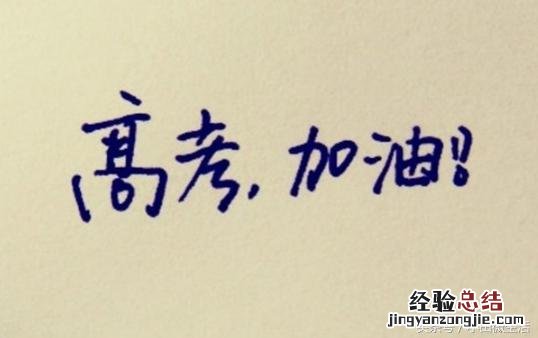 高考,加油!!
经验总结
jingyanzongjie.com